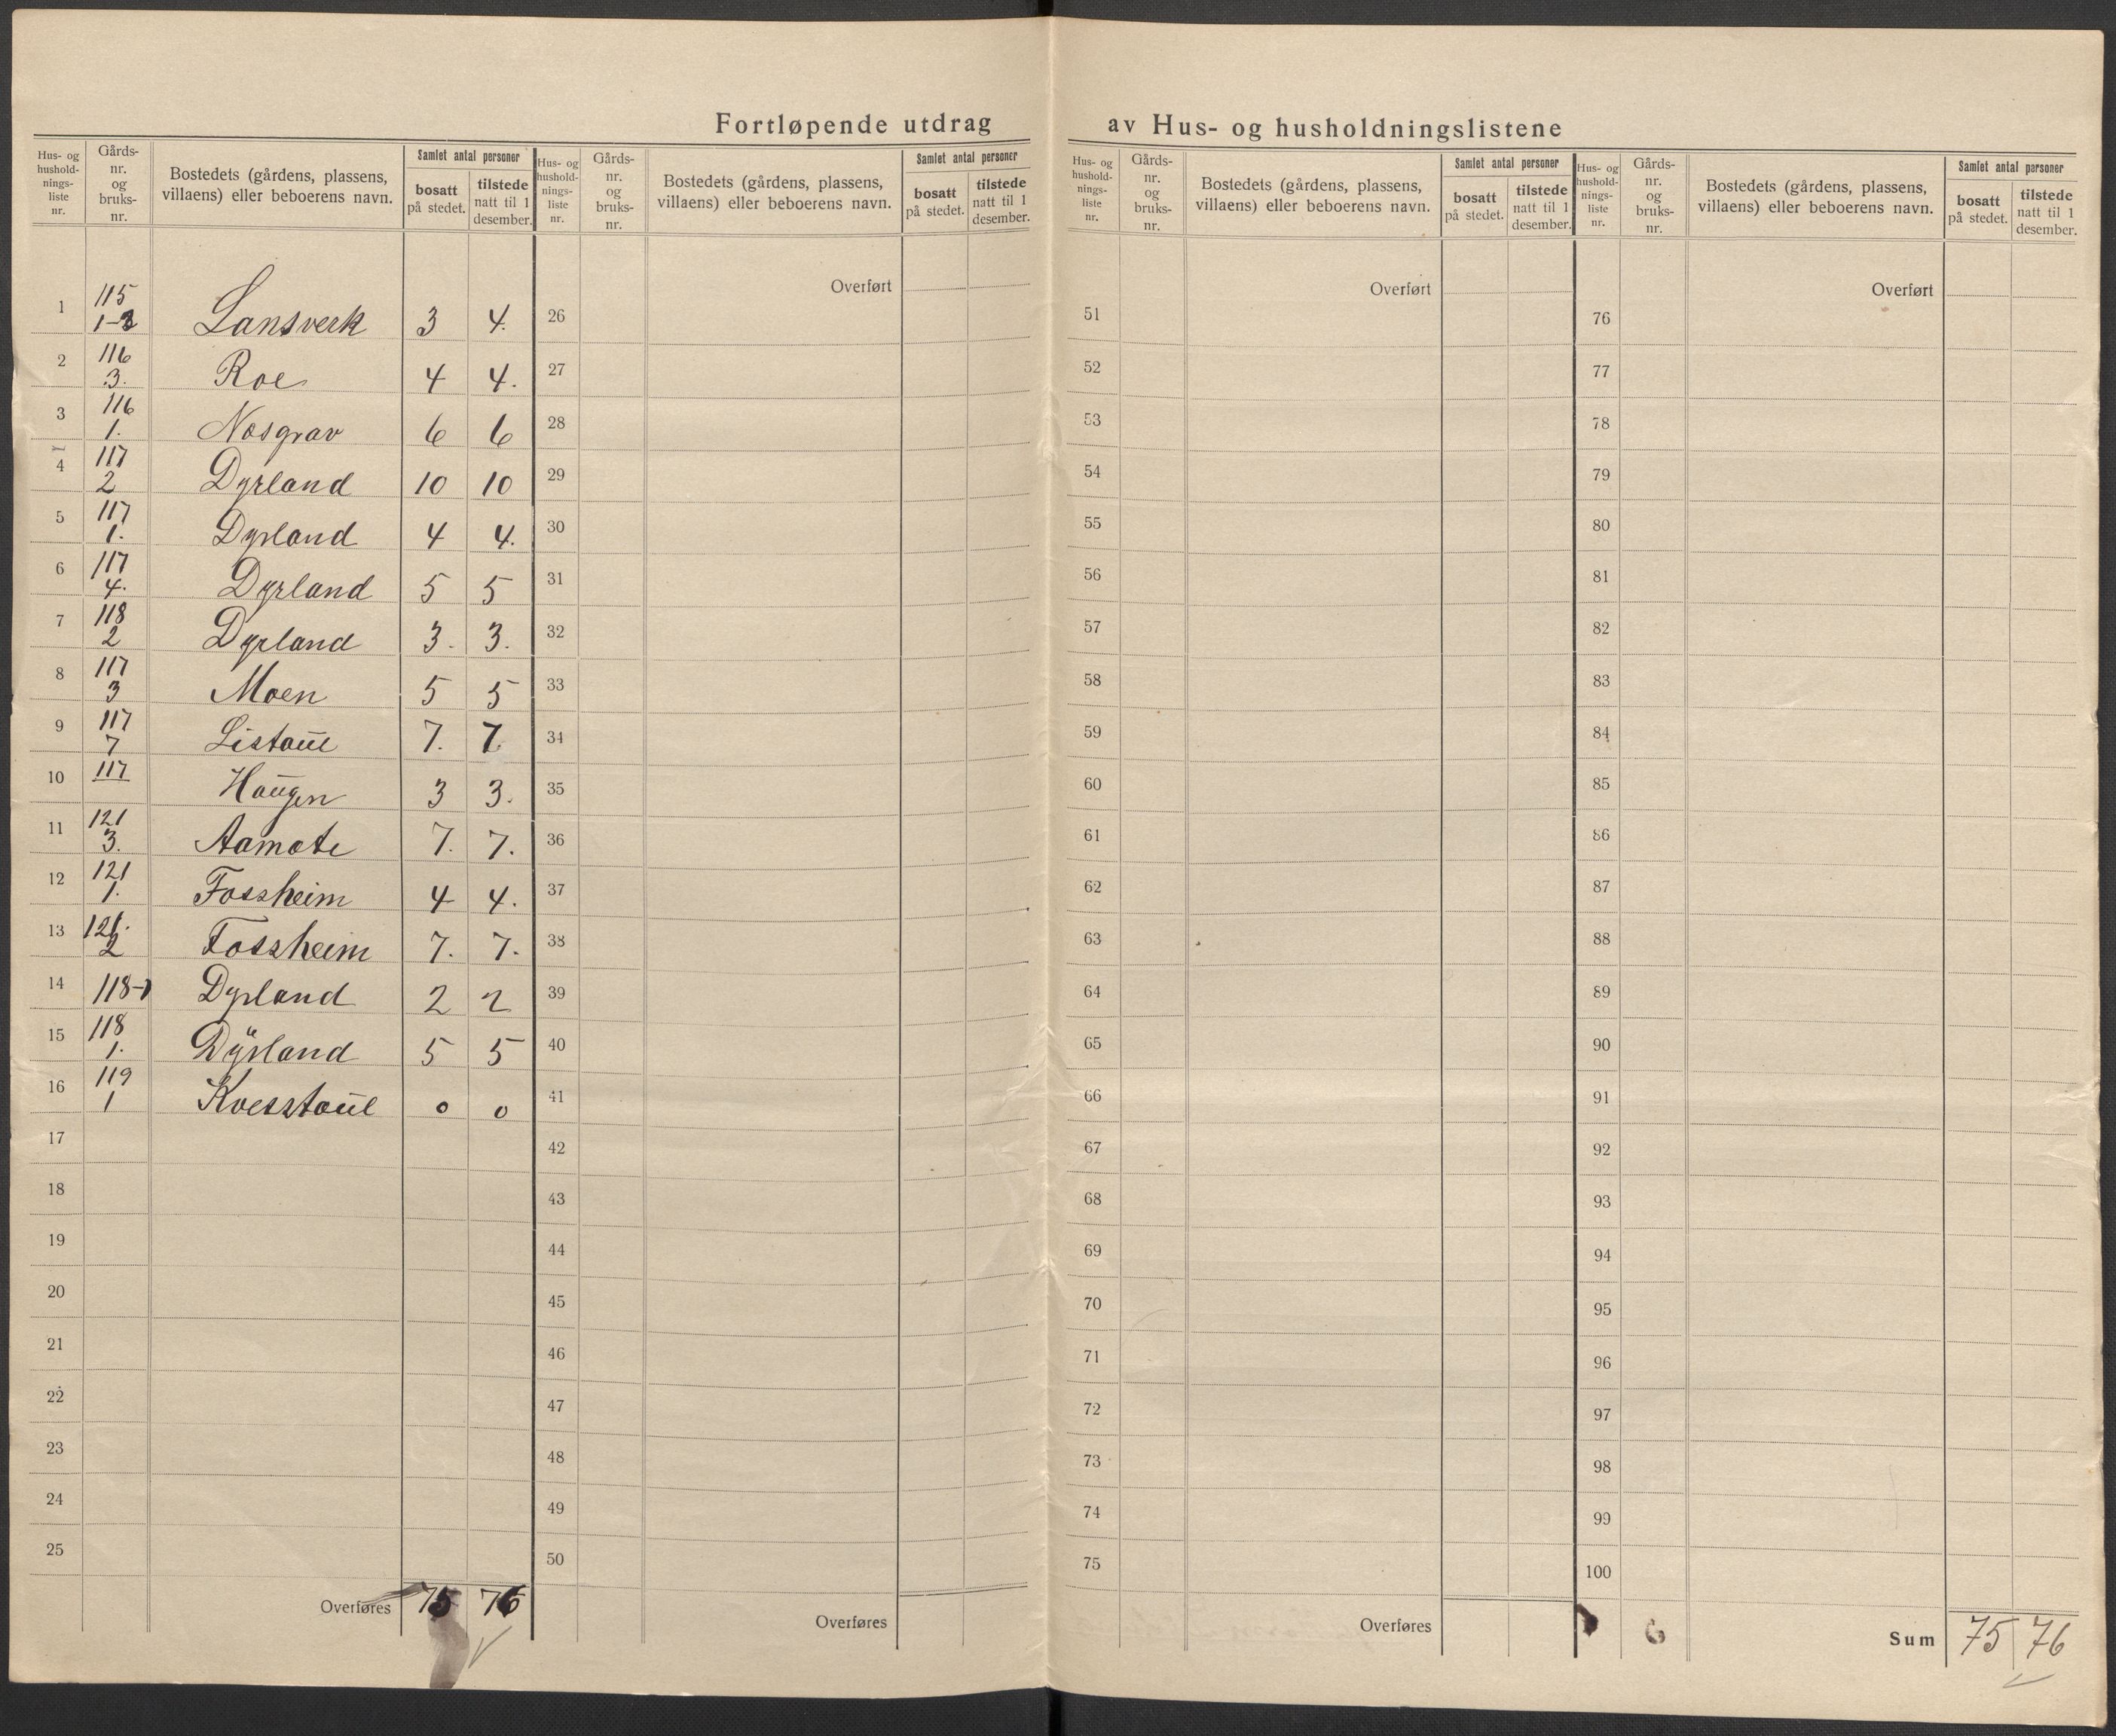 Fortløpende utdrag av Hus- og husholdningslistene
Hus- og hushold-nings-liste nr. Gårds-nr. og bruks-nr. Bostedets (gårdens, plassens, villaens) eller beboerens navn. Samlet antal personer bosatt på stedet. tilstede natt til 1 desember.
Hus- og hushold-nings-liste nr. Gårds-nr. og bruks-nr. Bostedets (gårdens, plassens, villaens) eller beboerens navn. Samlet antal personer bosatt på stedet. tilstede natt til 1 desember.
Hus- og hushold-nings-liste nr. Gårds-nr. og bruks-nr. Bostedets (gårdens, plassens, villaens) eller beboerens navn. Samlet antal personer bosatt på stedet. tilstede natt til 1 desember.
Hus- og hushold-nings-liste nr. Gårds-nr. og bruks-nr. Bostedets (gårdens, plassens, villaens) eller beboerens navn. Samlet antal personer bosatt på stedet. tilstede natt til 1 desember.
1 115 1-3 Lansverk 3 4.
2 116 3. Roe 4 4.
3 116 1. Nosgrav 6 6
4 117 2 Dyrland 10 10
5 117 1. Dyrland 4 4.
6 117 4. Dyrland 5 5
7 118 2 Dyrland 3. 3.
8 117 3 Moen 5 5
9 117 7 Listaūl 7. 7
10 117 Haūgen 3 3.
11 121 3. Aamote 7. 7.
12 121 1. Fossheim 4 4.
13 121. 2 Fossheim 7. 7.
14 118-1 Dyrland 2 2
15 118 1. Dÿrland 5 5
16 119 1 Kvesstaūl 0 0
17
18
19
20
21
22
23
24
25
Overføres 75 76
Overført
26
27
28
29
30
31
32
33
34
35
36
37
38
39
40
41
42
43
44
45
46
47
48
49
50
Overføres
Overført
51
52
53
54
55
56
57
58
59
60
61
62
63
64
65
66
67
68
69
70
71
72
73
74
75
Overføres
Overført
76
77
78
79
80
81
82
83
84
85
86
87
88
89
90
91
92
93
94
95
96
97
98
99
100
Sum 75 76